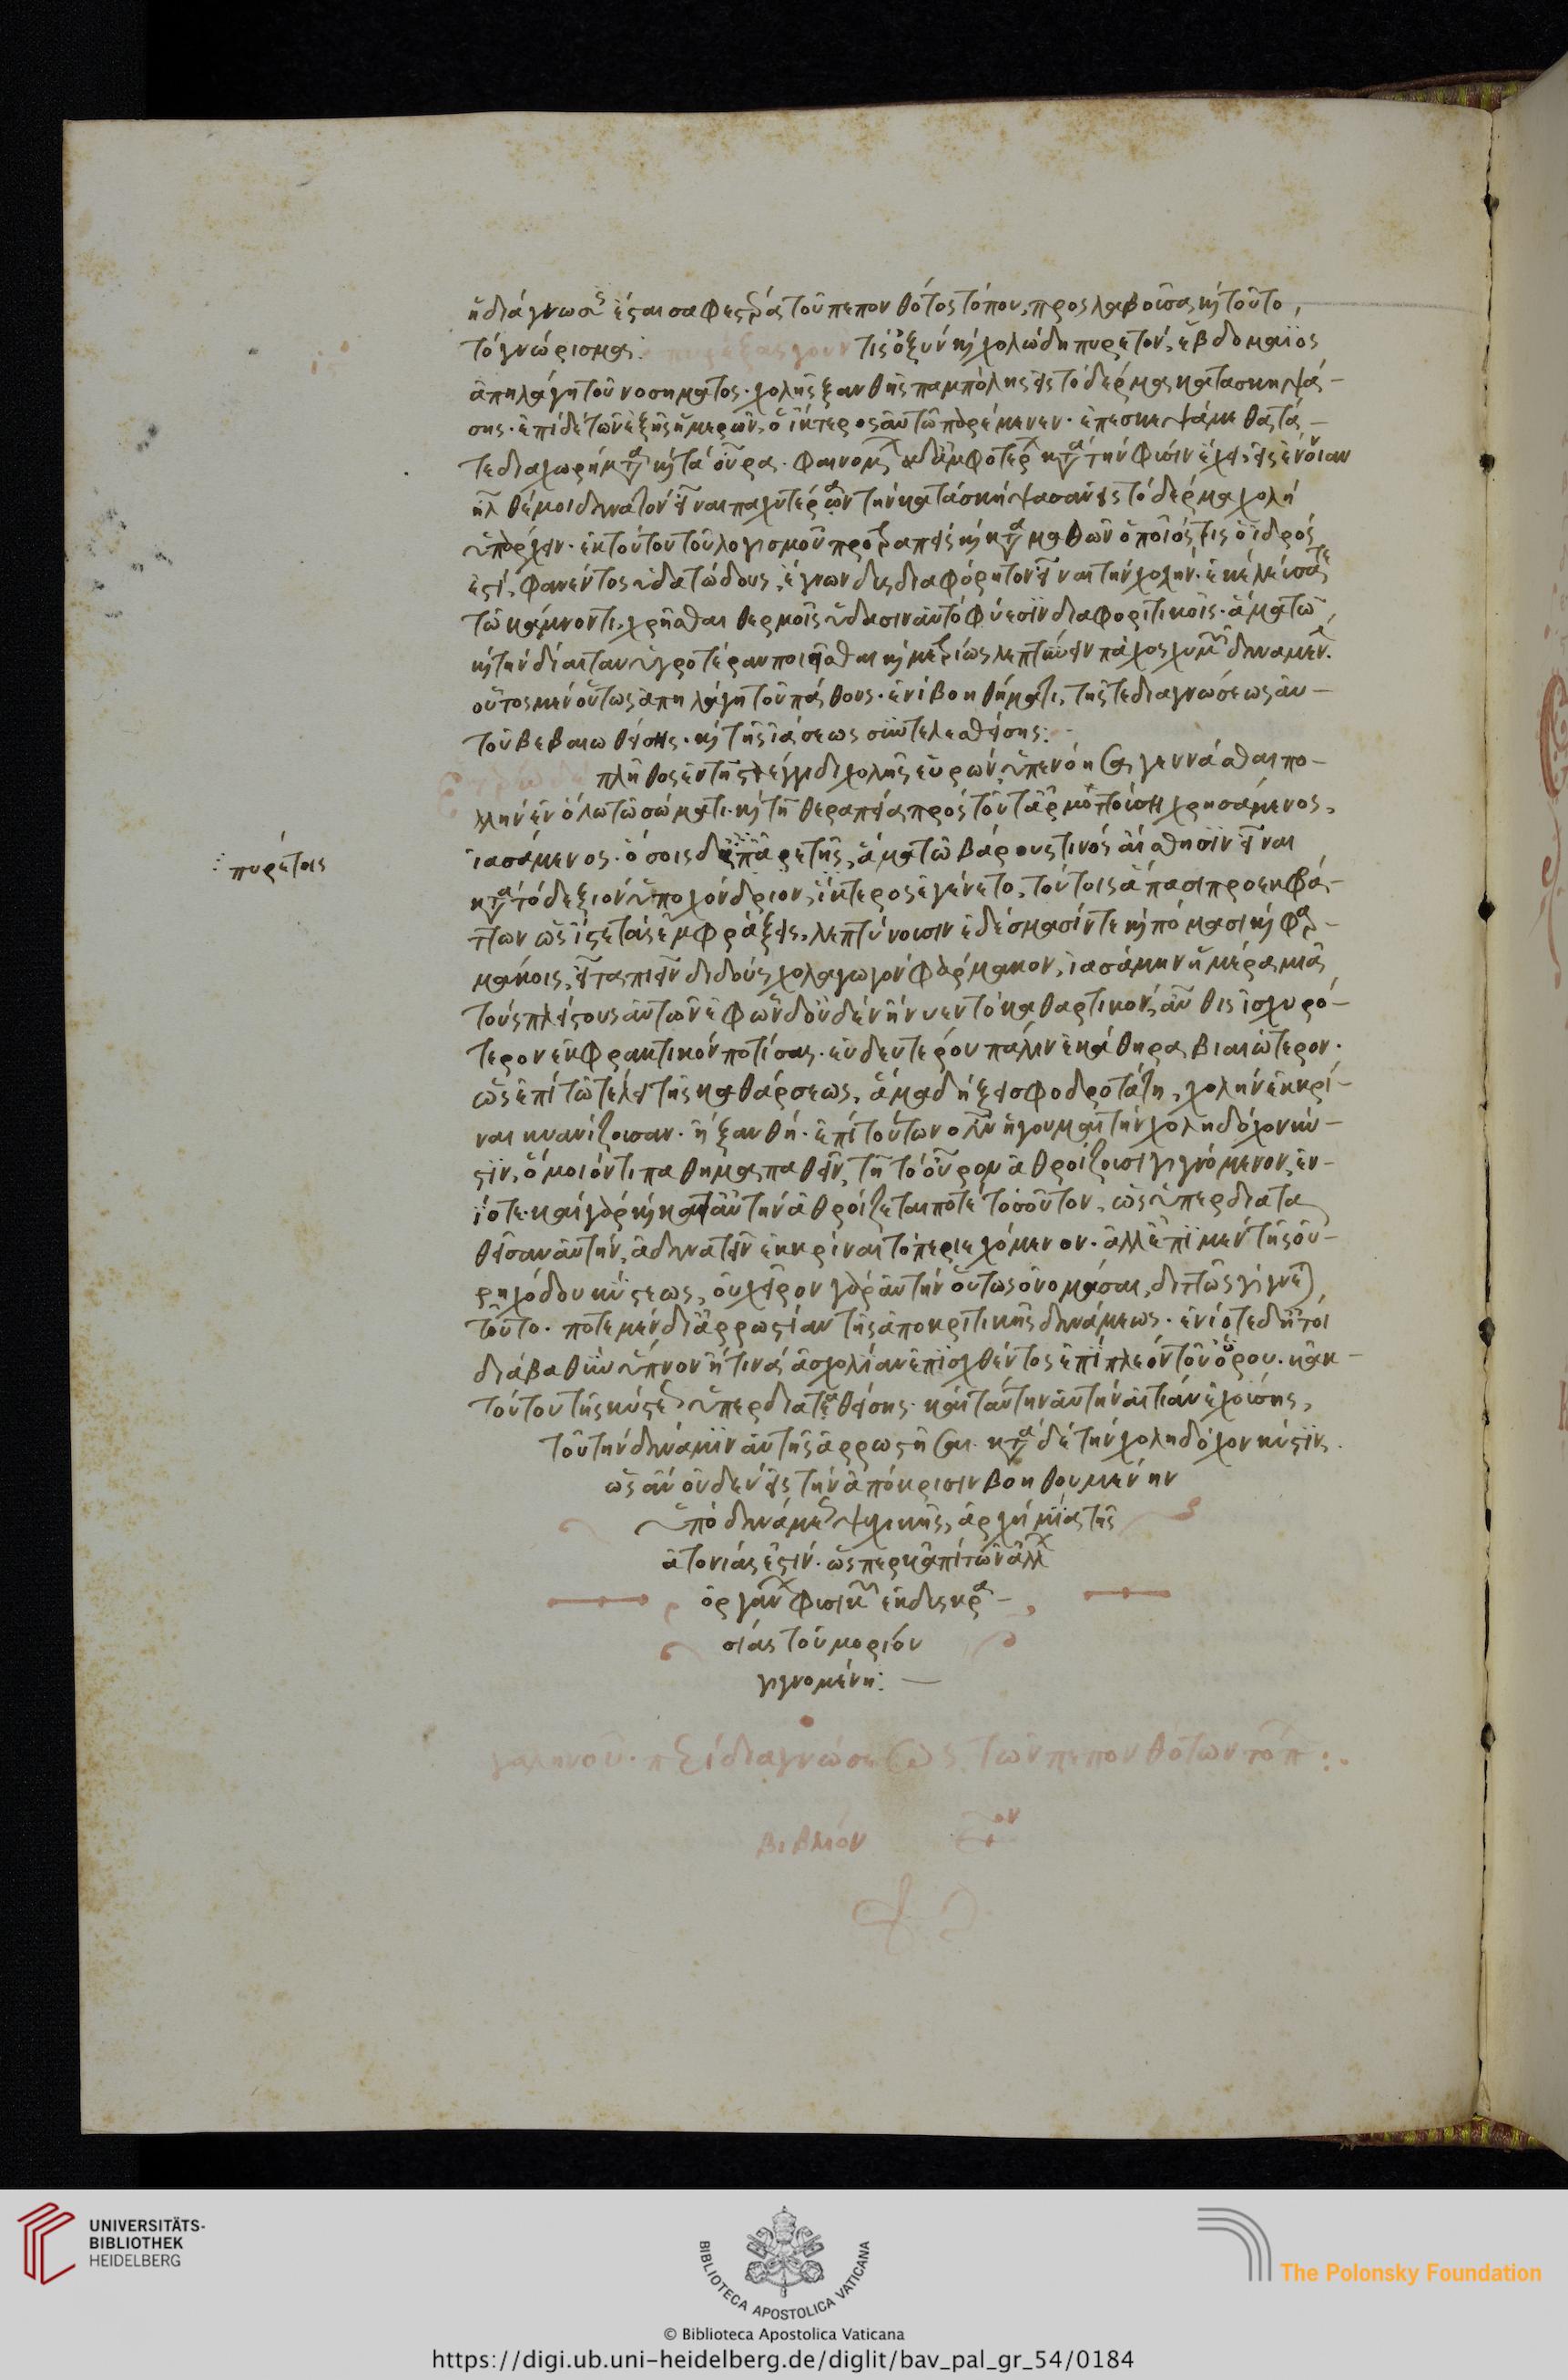 ἡ διάγνωσις ἔσται σαφεστέρα τοῦ πεπονθότος τόπου, προσλαβοῦσα καὶ τοῦτο,
τὸ γνώρισμα: πυρέξας γοῦν τίς ὀξὺν καὶ χολώδη πυρετόν, ἑβδομαῖος
ἀπηλάγη τοῦ νοσήματος. χολῆς ξανθῆς παμπόλης εἰς τὸ δέρμα κατασκηψά-
σης. ἐπὶ δὲ τῶν ἑξῆς ἡμερῶν, ὁ ἴκτερος αὐτῷ παρέμενεν. ἐπεσκεψάμεθα τά-
τε διαχωρήματα καὶ τὰ οὖρα. φαινομένων δ' ἀμφοτέρων κατὰ τὴν φύσιν ἔχειν, εἰς ἔννοιαν
ἦλθέ μοι δυνατὸν εἶναι παχυτέραν τὴν κατασκήψασαν εἰς τὸ δέρμα χολὴ
ὑπάρχειν. ἐκ τούτου τοῦ λογισμοῦ προτραπεὶς καὶ καταμαθὼν ὁποῖός τις ὁ ἱδρός
ἐστί, φανέντος ὑδατώδους, ἔγνων δυσδιαφόρητον εἶναι τὴν χολήν. ἐκέλευσά τε
τῷ κάμνοντι, χρῆσθαι θερμοῖς ὕδασιν αὐτοφύεσιν διαφοριτικοῖς. ἅμα τῷ,
καὶ τὴν δίαιταν ὑγροτέραν ποιεῖσθαι καὶ μετρίως λεπτύνειν πάχος χυμῶν δυναμένην.
οὗτος μὲν οὕτως ἀπηλάγη τοῦ πάθους. ἑνὶ βοηθήματι, τῆς τε διαγνώσεως αὐ-
τοῦ βεβαιωθείσης. καὶ τῆς ἰάσεως συντελεσθείσης:
πλῆθος ἐν τῇ στεγγίδι χολῆς εὑρών, ὑπενόησα γεννᾶσθαι πο-
λλὴν ἐν ὅλῳ τῷ σώματι. καὶ τῇ θεραπείᾳ πρὸς τοῦτ' ἁρμοττούσῃ χρησάμενος,
ἰασάμενος. ὅσοις δ' ἐπ' ἀρετῆς, ἅμα τῷ βάρους τινὸς αἴσθησιν εἶναι
πυρέτοις
κατὰ τὸ δεξιὸν ὑποχόνδριον, ἴκτερος ἐγένετο, τούτοις ἅπασι προεκφά-
ττων ὡς ἴστε τὰς ἐμφράξεις, λεπτύνουσιν ἐδέσμασίν τε καὶ πόμασι καὶ φαρ-
μάκοις, εἶτα πιεῖν διδοὺς χολαγωγὸν φάρμακον, ἰασάμην ἡμέρα μιᾷ
τοὺς πλείστους αὐτῶν ἐφ' ὧν δ' οὐδὲν ἤνυεν τὸ καθαρτικόν, αὖθις ἰσχυρό-
τερον ἐκφρακτικὸν ποτίσας. ἐκ δευτέρου πάλιν ἐκάθηρα βιαιώτερον.
ὡς ἐπὶ τῷ τέλει τῆς καθάρσεως, ἅμα δήξει σφοδροτάτη, χολὴν ἐκκρί-
ναι κυανίζουσαν. ἢ ξανθή. ἐπὶ τούτων οὖν ἡγοῦμαι τὴν χοληδόχον κύ-
στιν, ὅμοιόν τι πάθημα παθεῖν, τῇ τὸ οὖρον ἀθροίζουσι γιγνόμενον, ἐν-
ίοτε. καὶ γὰρ καὶ κατ' αὐτὴν ἀθροίζεται ποτὲ τοσοῦτον, ὡς ὑπερδιατα
θεῖσαν αὐτήν, ἀδυνατεῖν ἐκκρίναι τὸ περιεχόμενον. ἀλλ' ἐπὶ μὲν τῆς οὐ-
ρηχόδου κύστεως, οὐ χεῖρον γὰρ αὐτὴν οὕτως ὀνομάσαι, διττῶς γίγνεται,
τοῦτο. ποτὲ μὲν δι' ἀρρωστίαν τῆς ἀποκριτικῆς δυνάμεως. ἐνίοτε δ' ἤτοι
διὰ βαθὺν ὕπνον ἤ τινα ἀσχολίαν ἐπισχθέντος ἐπὶ πλέον τοῦ οὔρου. κἀκ-
τούτου τῆς κύστεως ὑπερδιαταθείσης. καὶ ταύτην αὐτὴν αἰτίαν ἐχούσης,
τοῦ τὴν δύναμιν αὐτῆς ἀρρωστῆσαι. κατὰ δὲ τὴν χοληδόχον κύστιν,
ὡς ἂν οὐδὲν εἰς τὴν ἀπόκρισιν βοηθουμένην
ὑπὸ δυνάμεως ψυχικῆς, ἀρχὴ μία τῆς
ἀτονίας ἐστίν. ὥσπερ κἀπὶ τῶν ἄλλων
ὀργάνων φυσικῶν ἐκ δυσκρα-
σίας τοῦ μορίου
γιγνομένη: —
γαληνοῦ. περὶ διαγνώσεως τῶν πεπονθότων τόπων:.
βιβλίον
UNIVERSITÄTS-
BIBLIOTHEK
HEIDELBERG
BIBLIOTECA APOSTOLICA VATICANA
The Polonsky Foundation
© Biblioteca Apostolica Vaticana
https://digi.ub.uni-heidelberg.de/diglit/bav_pal_gr_54/0184